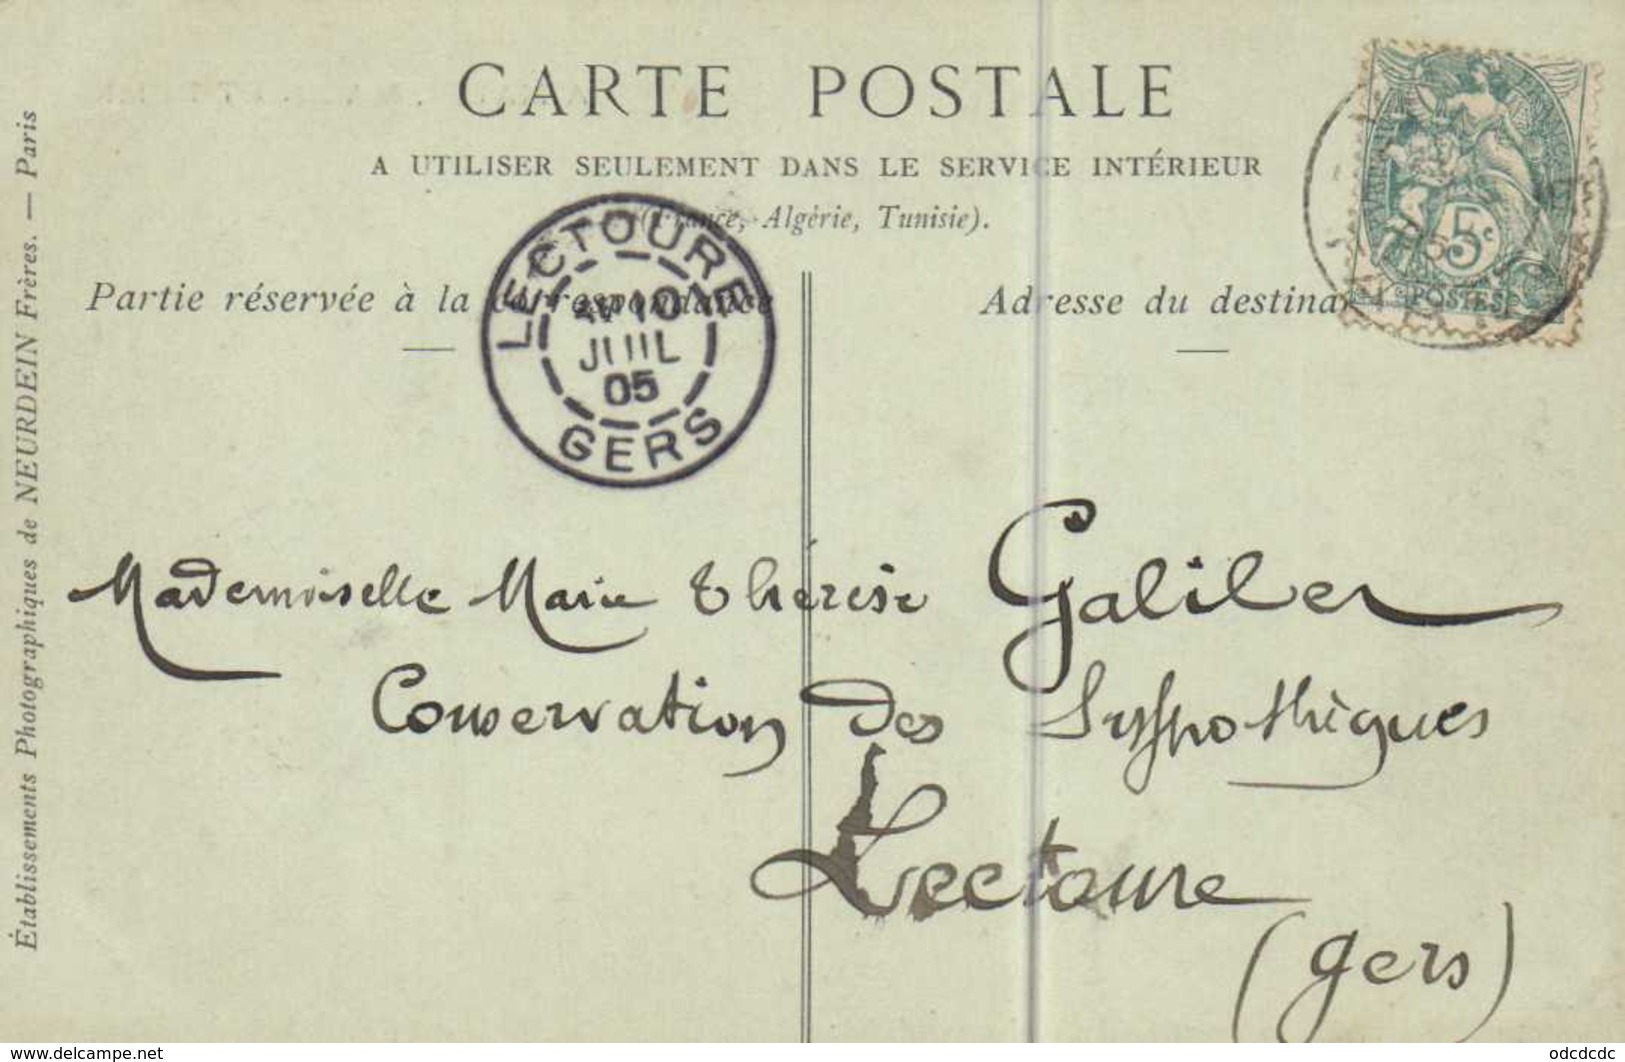 CARTE POSTALE
A UTILISER SEULEMENT DANS LE SERVICE INTÉRIEUR
(France, Algérie, Tunisie).
Partie réservée à la correspondance
Adresse du destinat
LECTOURE
10
JUIL
05
GERS
5c
POSTES
Mademoiselle Marie Thérèse Galiber
Conservation des hyppothèques
Lectoure
(Gers)
Établissements Photographiques de NEURDEIN Frères. — Paris
https://www.delcampe.net
odcdcdc